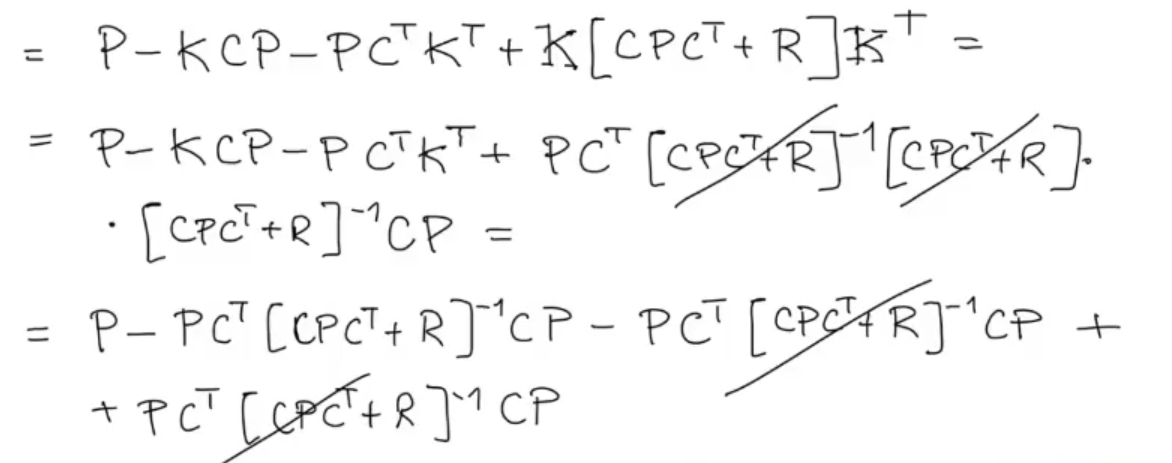 = P − KCP − PCᵀKᵀ + K[CPCᵀ + R]Kᵀ =
= P − KCP − PCᵀKᵀ + PCᵀ[CPCᵀ+R]⁻¹[CPCᵀ+R]·
·[CPCᵀ+R]⁻¹CP =
= P − PCᵀ[CPCᵀ+R]⁻¹CP − PCᵀ[CPCᵀ+R]⁻¹CP +
+ PCᵀ[CPCᵀ+R]⁻¹CP